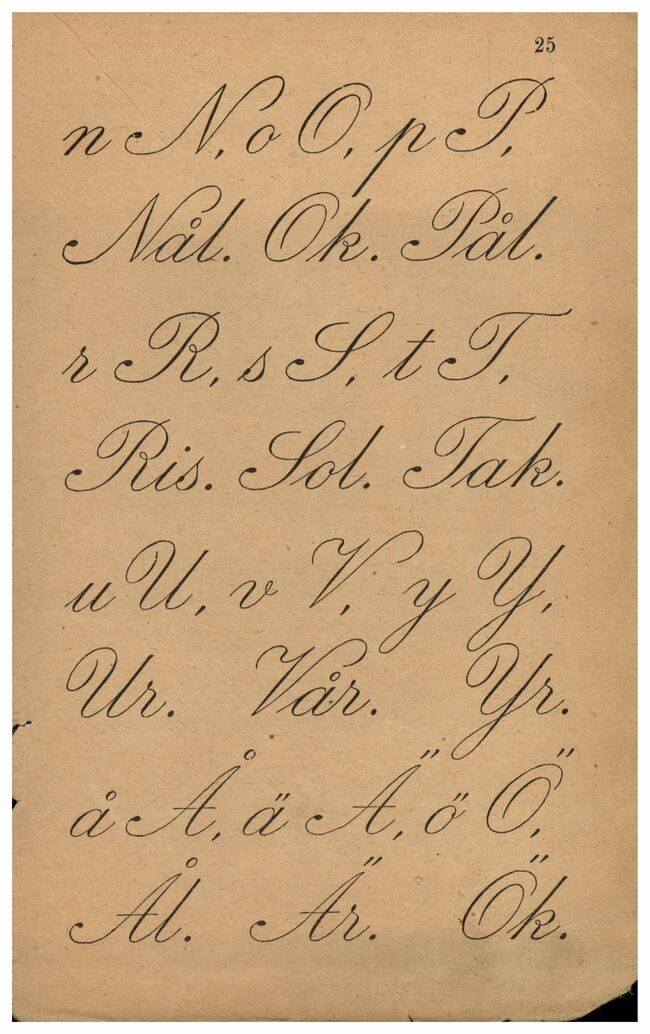 25
n N, o O, p P,
Nål. Ok. Pål.
r R, s S, t T,
Ris. Sol. Tak.
u U, v V, y Y,
Ur. Vår. Yr.
å Å, ä Ä, ö Ö,
Ål. Är. Ök.